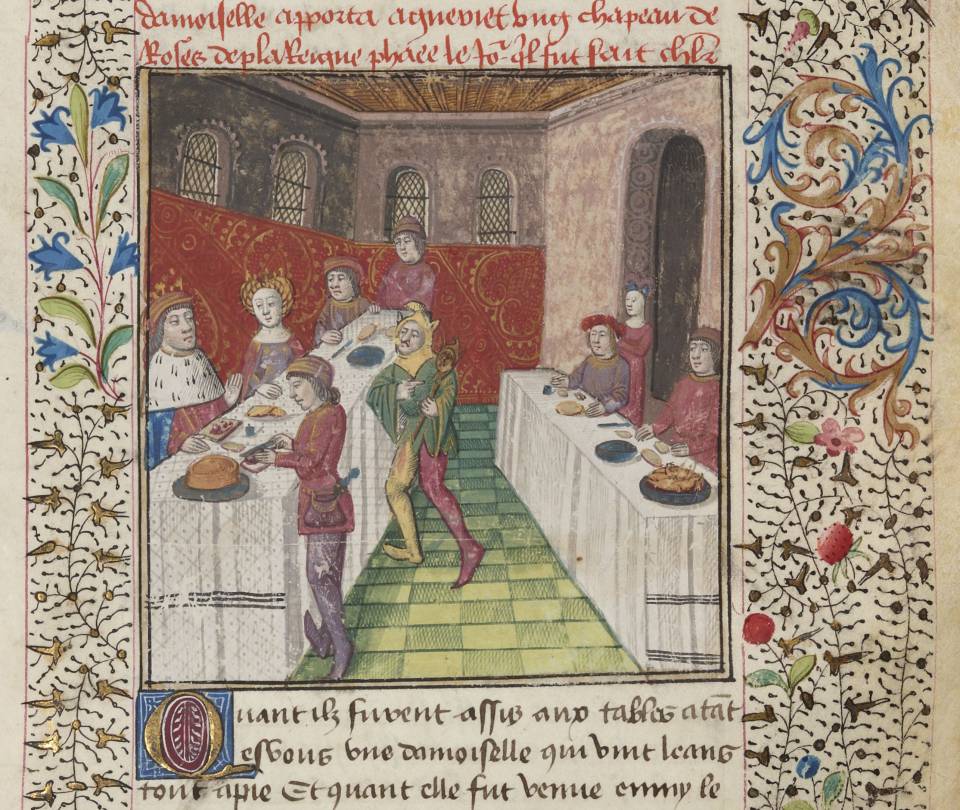 damoiselle apporta agneviet vng chapeau de
Roses de pla Reigne phaee le Jor ql fut fait chlr
Quant ilz furent assis aux tables atāt
esvous vne damoiselle qui vint leans
tout apie Et quant elle fut venue emmy le